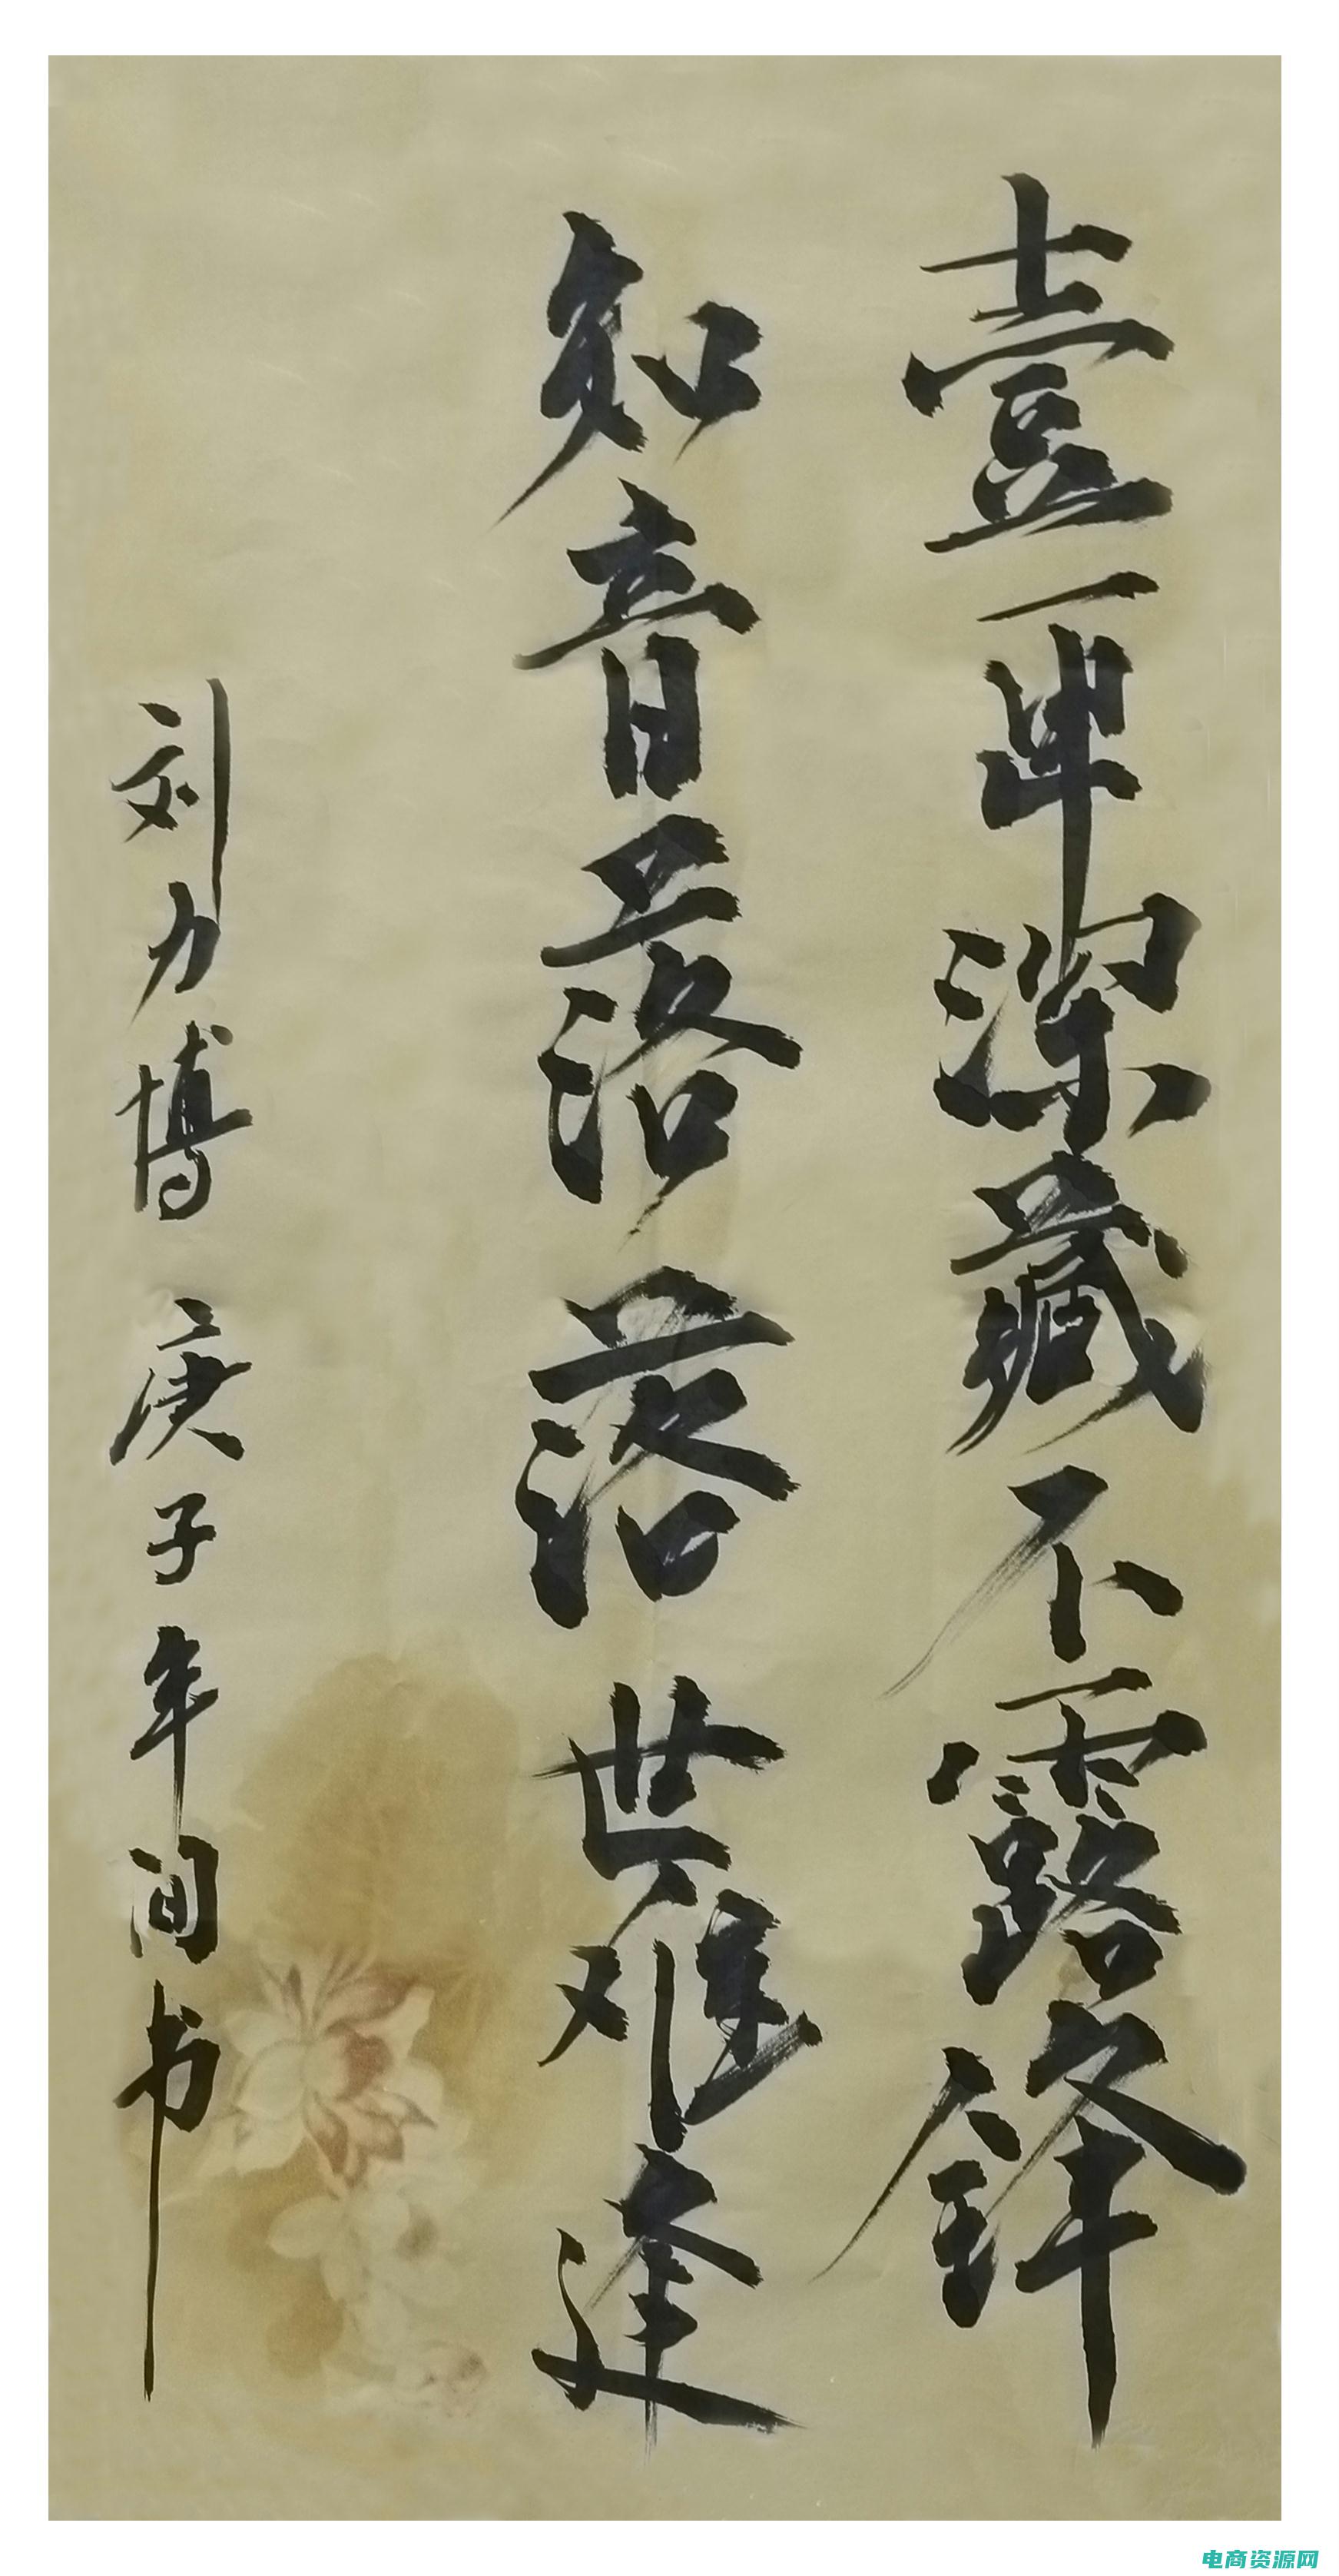 壹再深藏不露鋒
知音落落世难逢
刘力博 庚子年间书
电商资源网